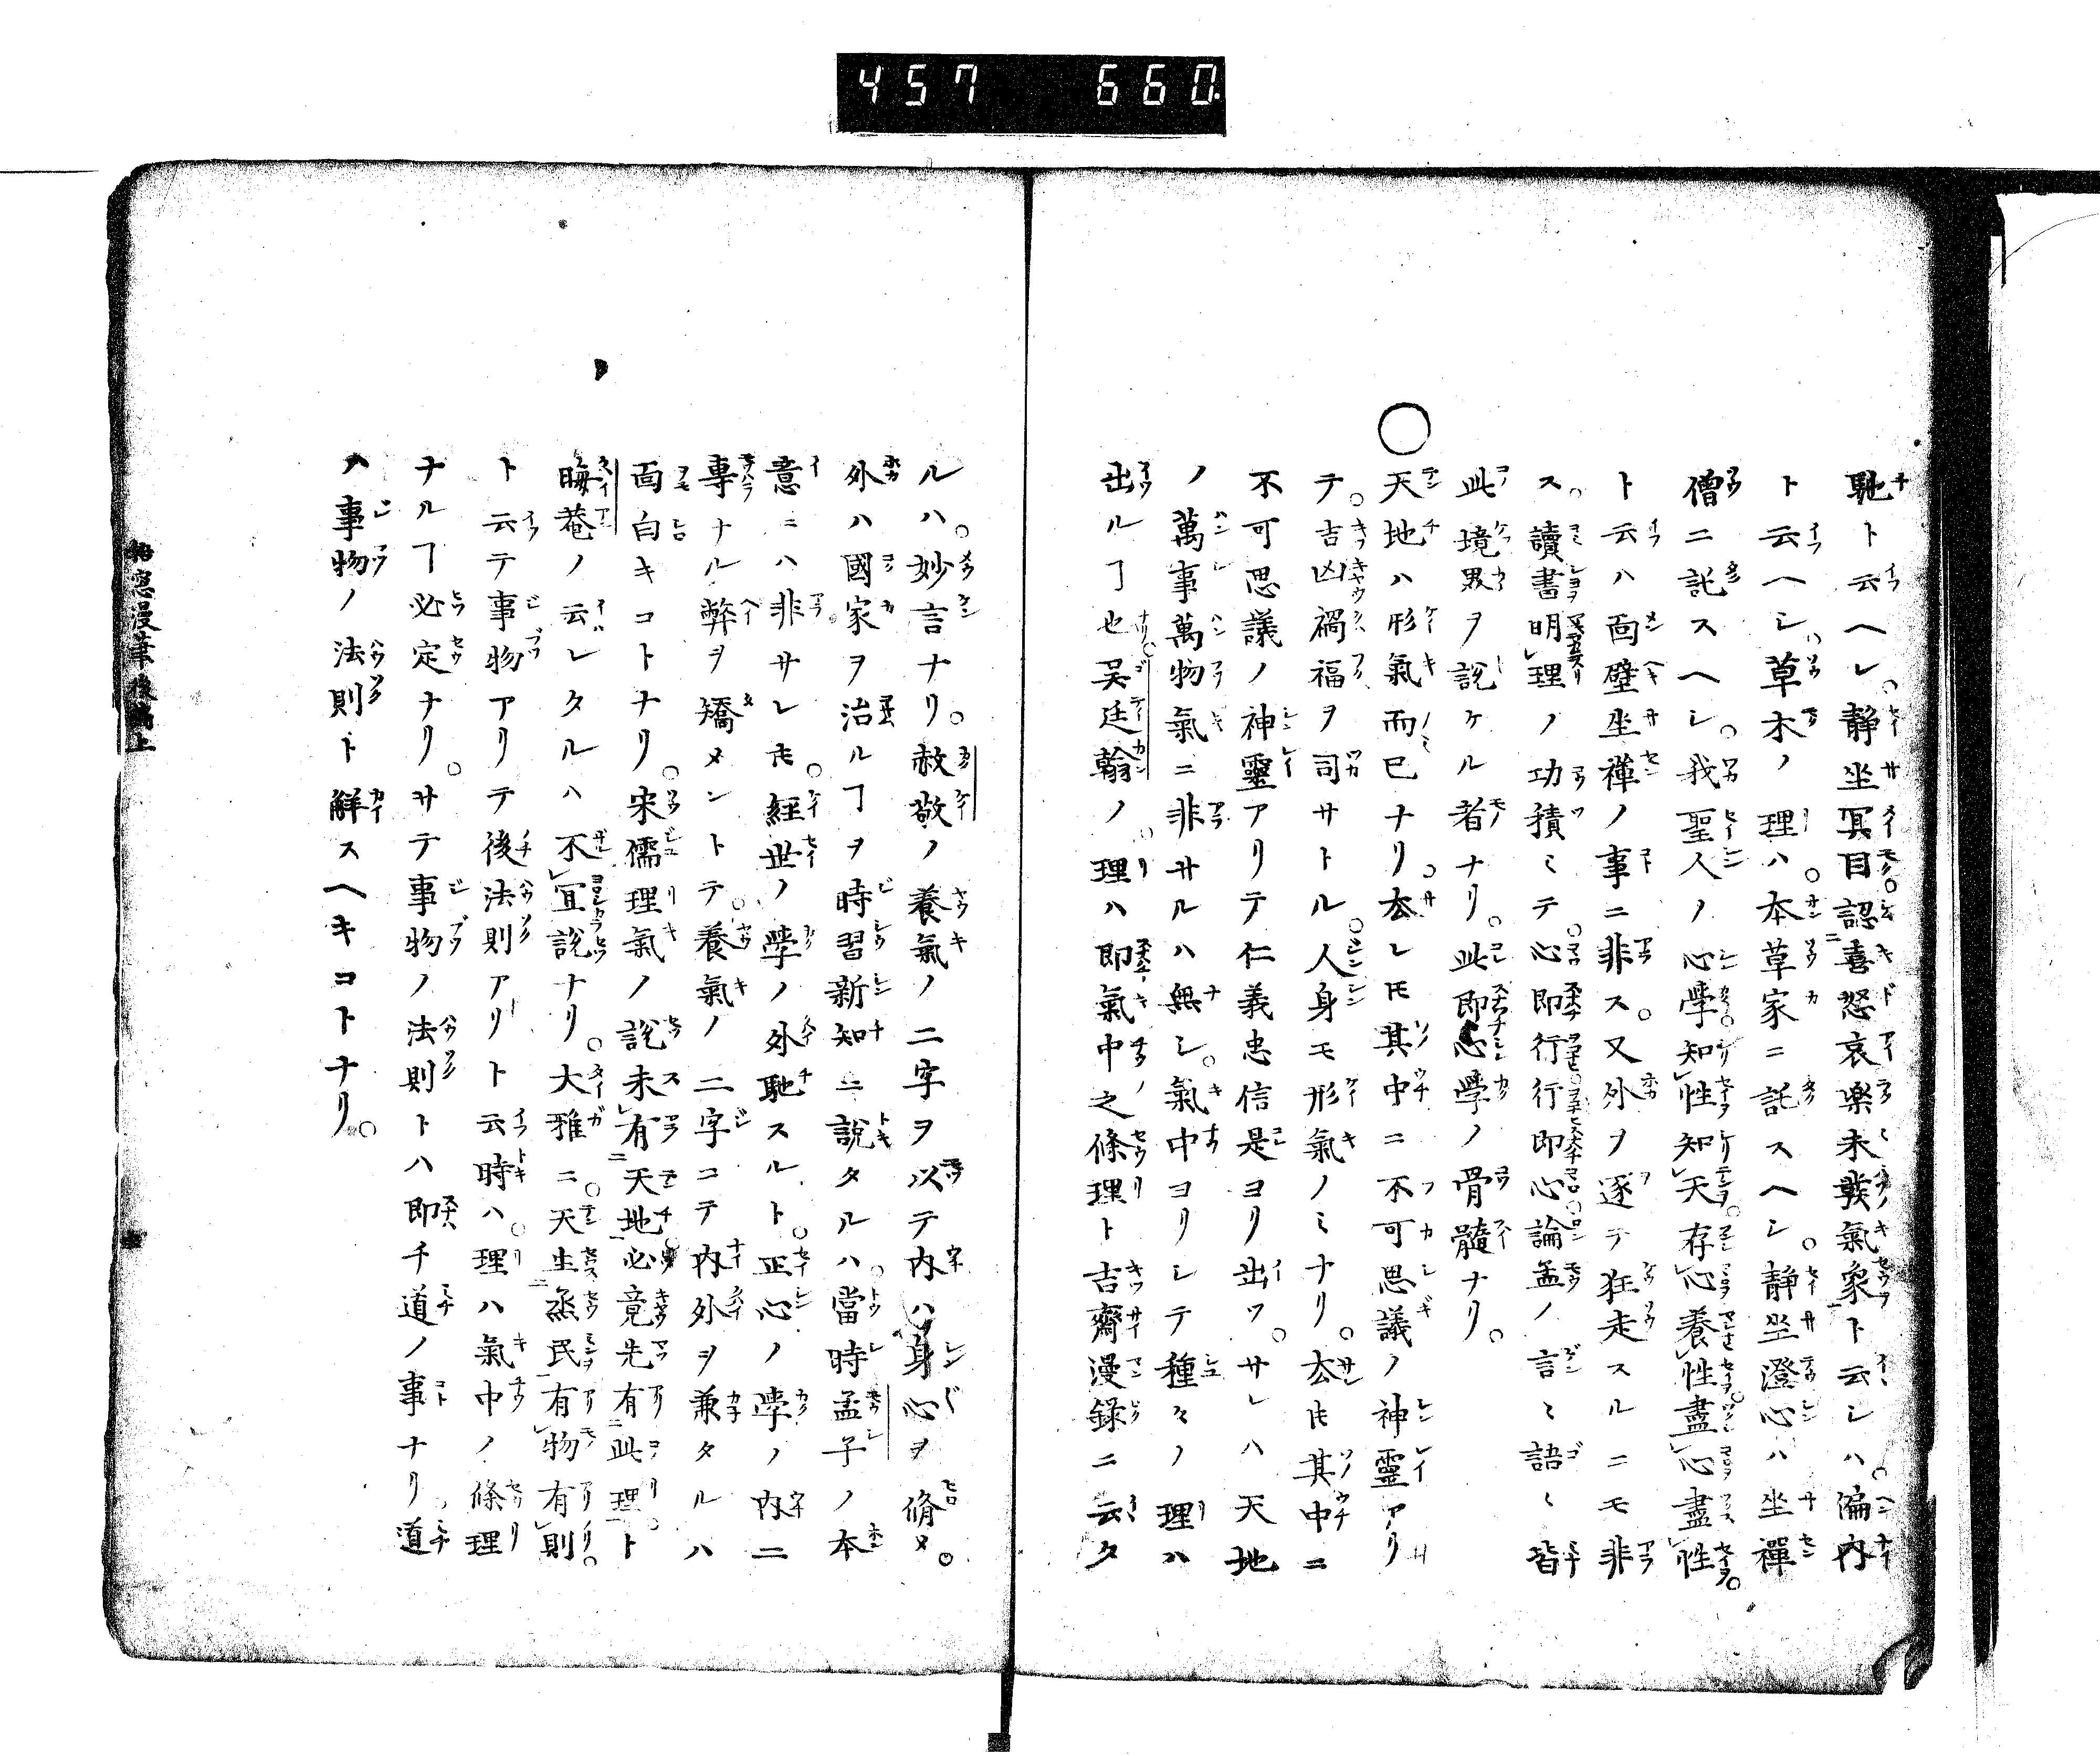 457 660
馳ト云ヘシ。静坐冥目。認喜怒哀楽未発気象ト云シハ。偏内
ト云ヘシ。草木ノ理ハ。本草家ニ託スヘシ。静坐澄心ハ坐禪
僧ニ託スヘシ。我聖人ノ心學。知性知天。存心養性。盡心盡性。
ト云ハ面壁坐禪ノ事ニ非ス。又外ヲ逐テ狂走スルニモ非
ス。讀書明理ノ功積ミテ。心即行行即心。論孟ノ言〻語〻皆
此境界ヲ説ケル者ナリ。此即心學ノ骨髓ナリ。
○天地ハ形氣而已ナリ。厺レ𪜈其中ニ不可思議ノ神靈アリ
テ。吉凶禍福ヲ司サトル。人身モ形氣ノミナリ。厺𪜈其中ニ
不可思議ノ神靈アリテ仁義忠信是ヨリ出ツ。サレハ天地
ノ萬事萬物氣ニ非サルハ無シ。氣中ヨリシテ種々ノ理ハ
出ルヿ也。吴廷翰ノ。理ハ即氣中之條理ト吉齋漫録ニ云タ
ルハ。妙言ナリ。赦敬ノ養氣ノ二字ヲ以テ内ハ身心ヲ脩メ。
外ハ國家ヲ治ルヿヲ時習新知ニ説タルハ。當時孟子ノ本
意ニハ非サレ𪜈。經世ノ學ノ外馳スルト。正心ノ學ノ内ニ
專ナル弊ヲ矯メントテ。養氣ノ二字コテ内外ヲ兼タルハ
面白キコトナリ。宋儒理氣ノ説未有天地必竟先有此理。ト
晦菴ノ云レタルハ不宜説ナリ。大雅ニ。天生烝民有物有則。
ト云テ事物アリテ後法則アリト云時ハ。理ハ氣中ノ條理
ナルヿ必定ナリ。サテ事物ノ法則トハ即チ道ノ事ナリ。道
ハ事物ノ法則ト解スヘキコトナリ。
梧窓漫筆後編上